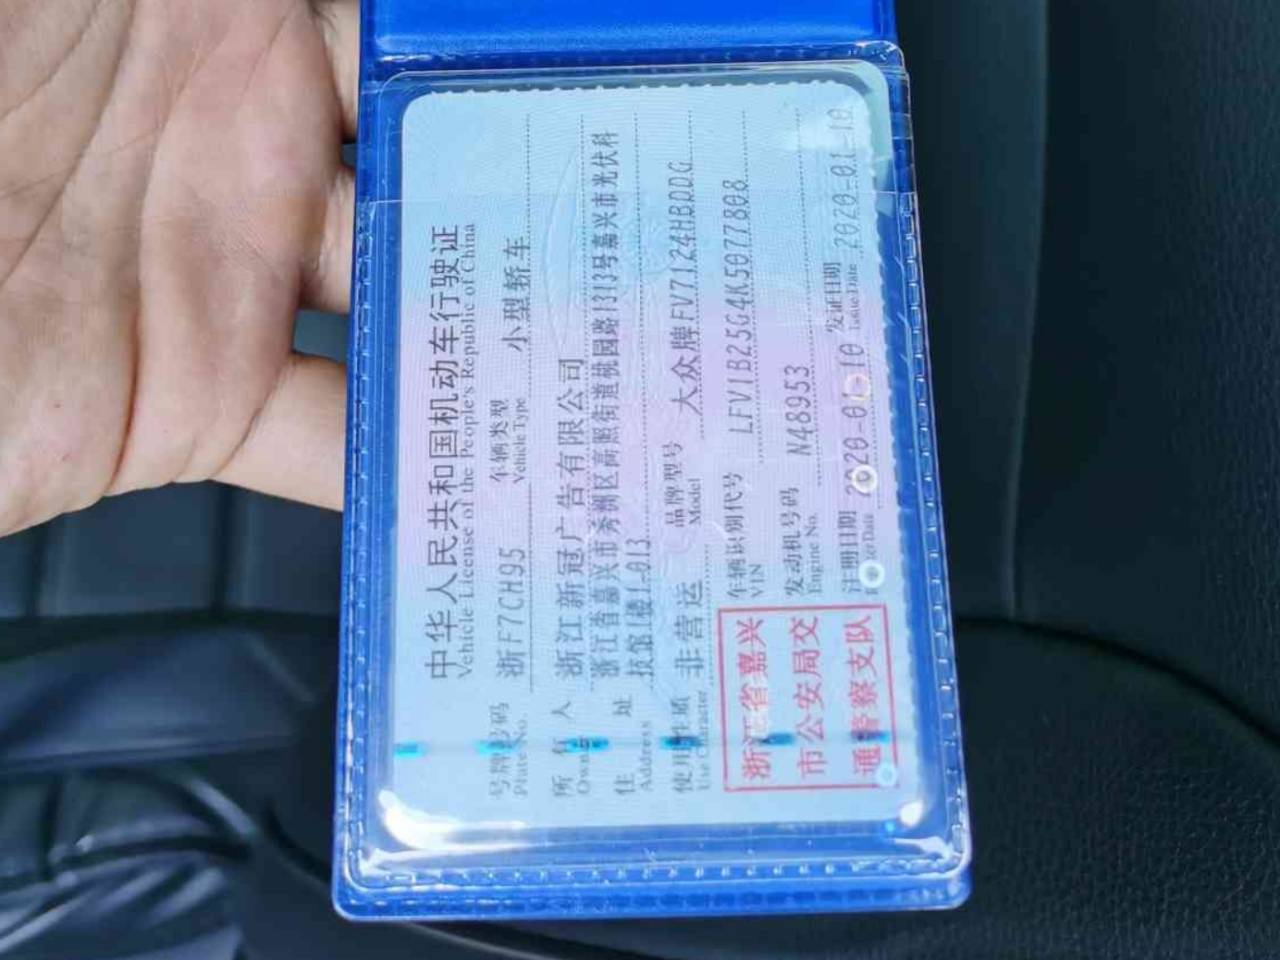 中华人民共和国机动车行驶证
Vehicle License of the People's Republic of China
号牌号码 浙F7CH95 车辆类型 小型轿车
Plate No. Vehicle Type
所有人 浙江新冠广告有限公司
Owner
住址 浙江省嘉兴市秀洲区高照街道桃园路1313号嘉兴市光伏科
Address 技馆1楼1-013
使用性质 非营运 品牌型号 大众牌FV7124HBDDG
Use Character Model
浙江省嘉兴
市公安局交
通警察支队
车辆识别代号 LFV1B25G4K5077808
VIN
发动机号码 N48953
Engine No.
注册日期 2020-01-10 发证日期 2020-01-10
Date Issue Date